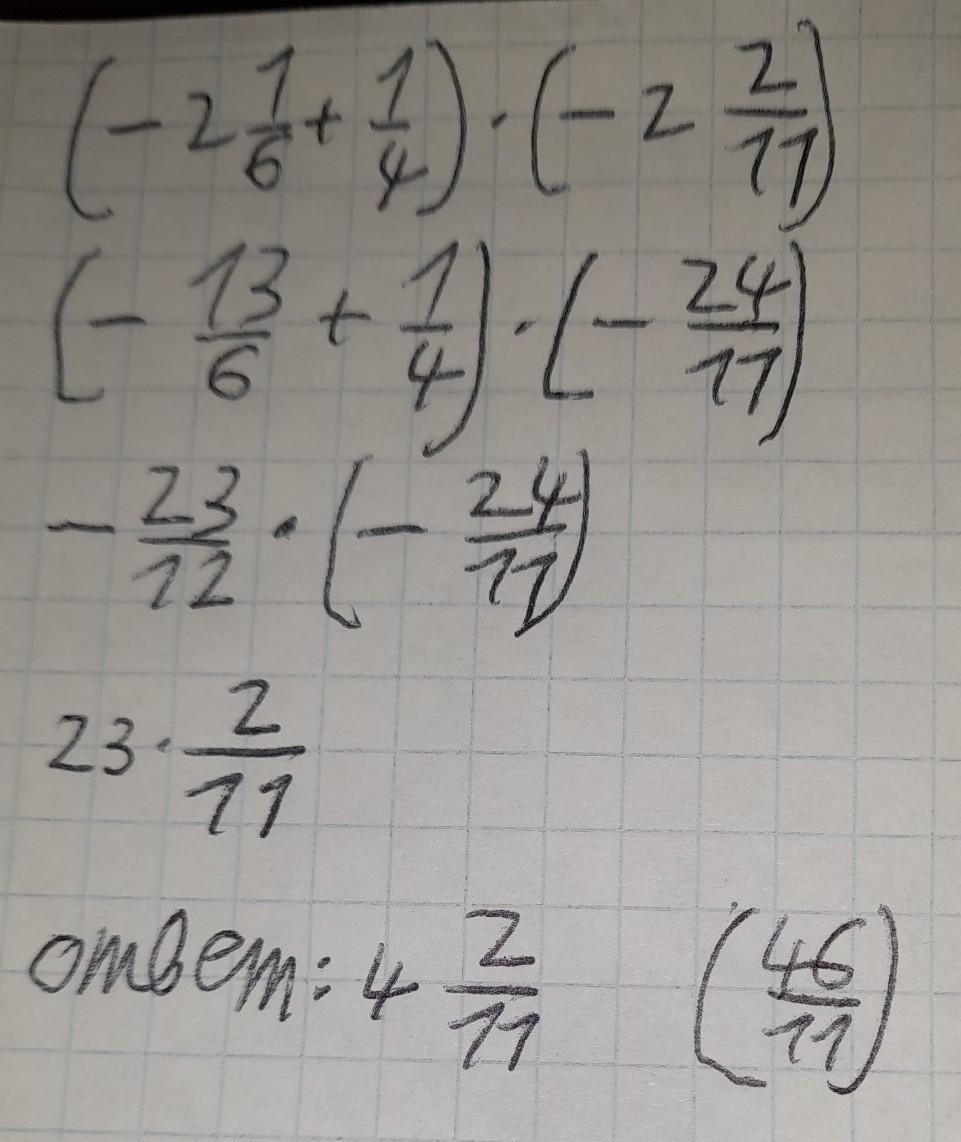 (-2 1/6 + 1/4) · (-2 2/11)
(- 13/6 + 1/4) · (- 24/11)
- 23/12 · (- 24/11)
23 · 2/11
ответ: 4 2/11 (46/11)